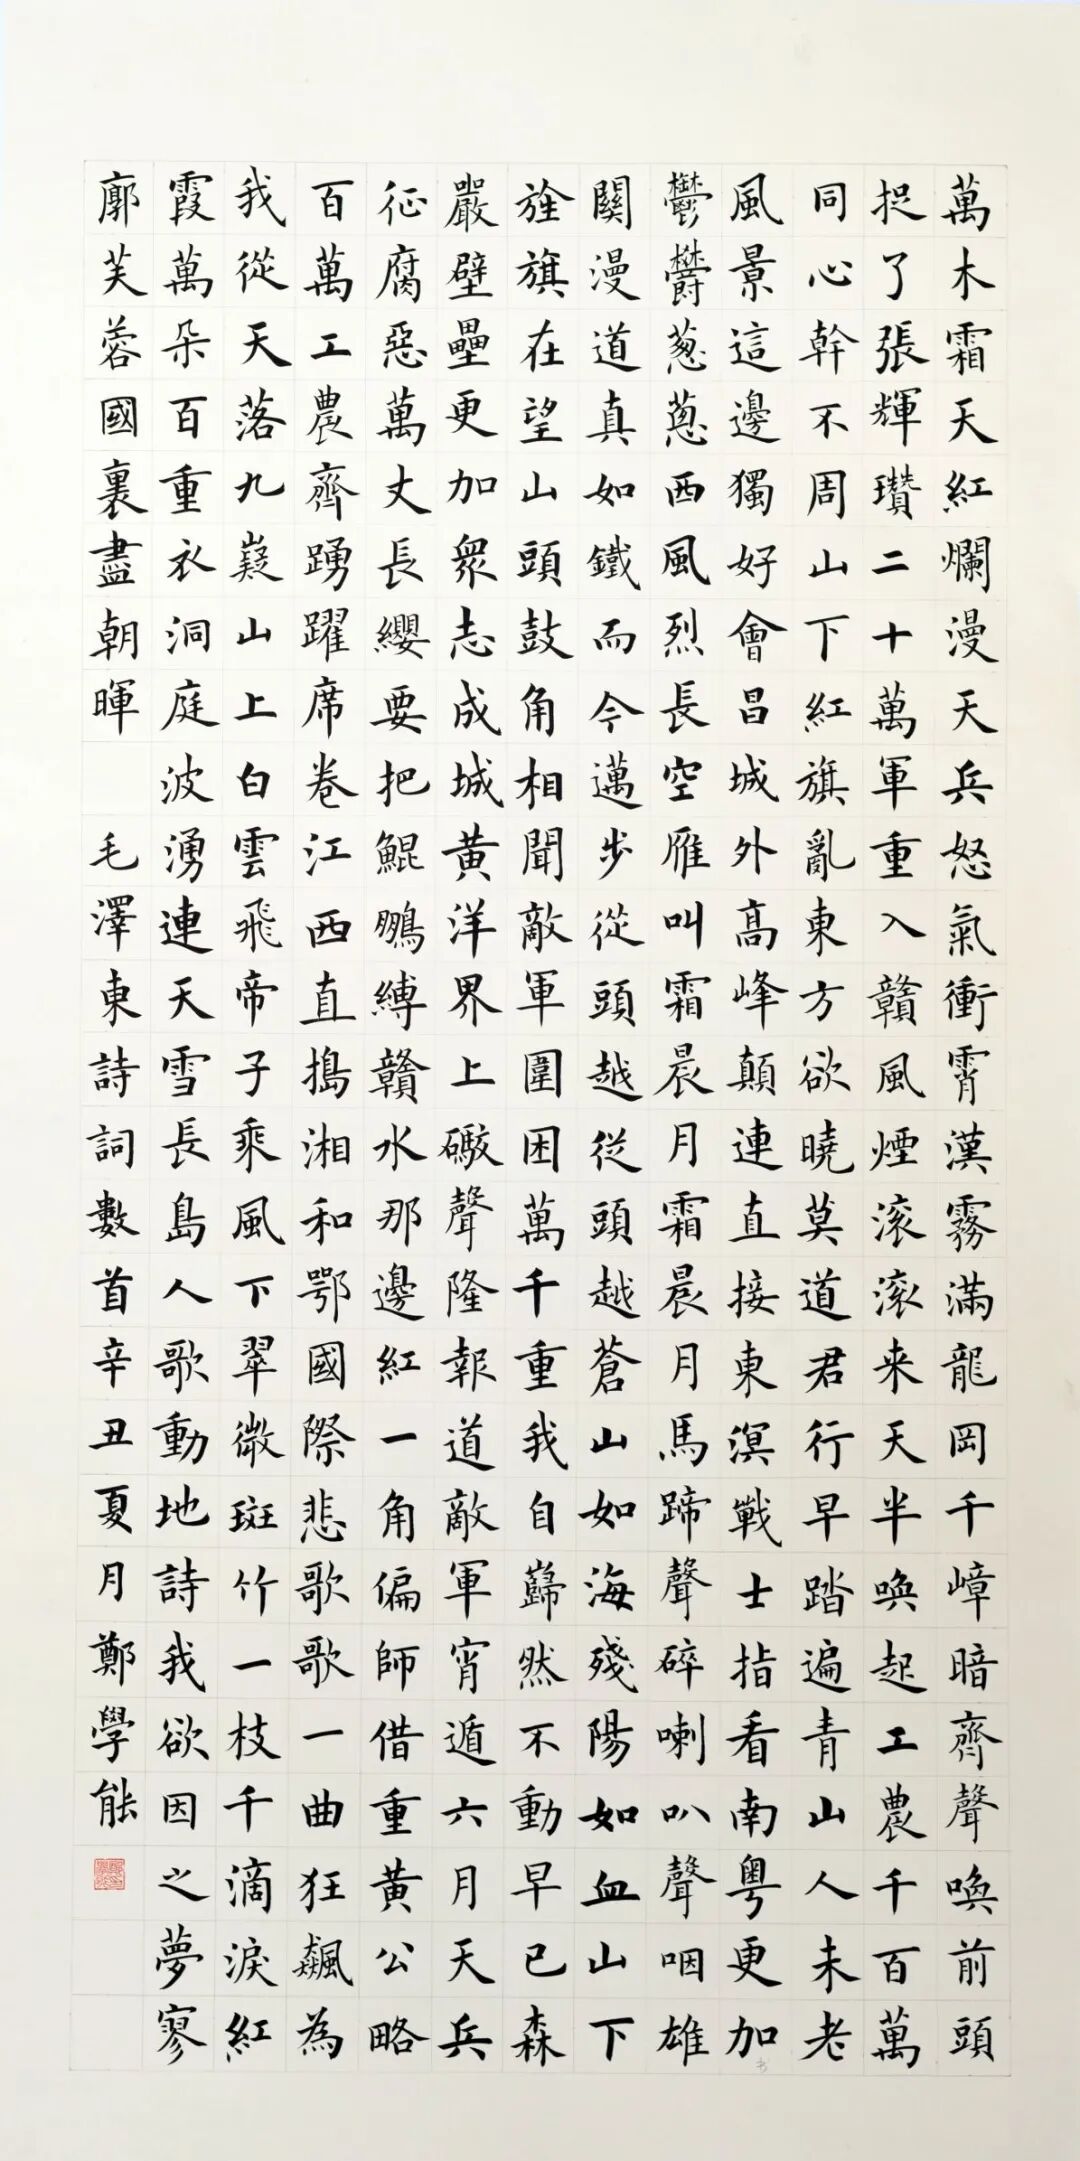 萬木霜天紅爛漫天兵怒氣衝霄漢霧滿龍岡千嶂暗齊聲喚前頭
捉了張輝瓚二十萬軍重入贛風煙滚滚来天半唤起工農千百萬
同心幹不周山下紅旗亂東方欲曉莫道君行早踏遍青山人未老
風景這邊獨好會昌城外高峰顛連直接東溟戰士指看南粤更加
鬱鬱葱葱西風烈長空雁叫霜晨月霜晨月馬蹄聲碎喇叭聲咽雄
關漫道真如鐵而今邁步從頭越從頭越蒼山如海殘陽如血山下
旌旗在望山頭鼓角相聞敵軍圍困萬千重我自巋然不動早已森
嚴壁壘更加衆志成城黃洋界上礮聲隆報道敵軍宵遁六月天兵
征腐惡萬丈長纓要把鯤鵬縛贛水那邊紅一角偏師借重黃公略
百萬工農齊踴躍席卷江西直搗湘和鄂國際悲歌歌一曲狂飆為
我從天落九嶷山上白雲飛帝子乘風下翠微斑竹一枝千滴淚紅
霞萬朵百重衣洞庭波湧連天雪長島人歌動地詩我欲因之夢寥
廓芙蓉國裏盡朝暉 毛澤東詩詞數首辛丑夏月鄭學能